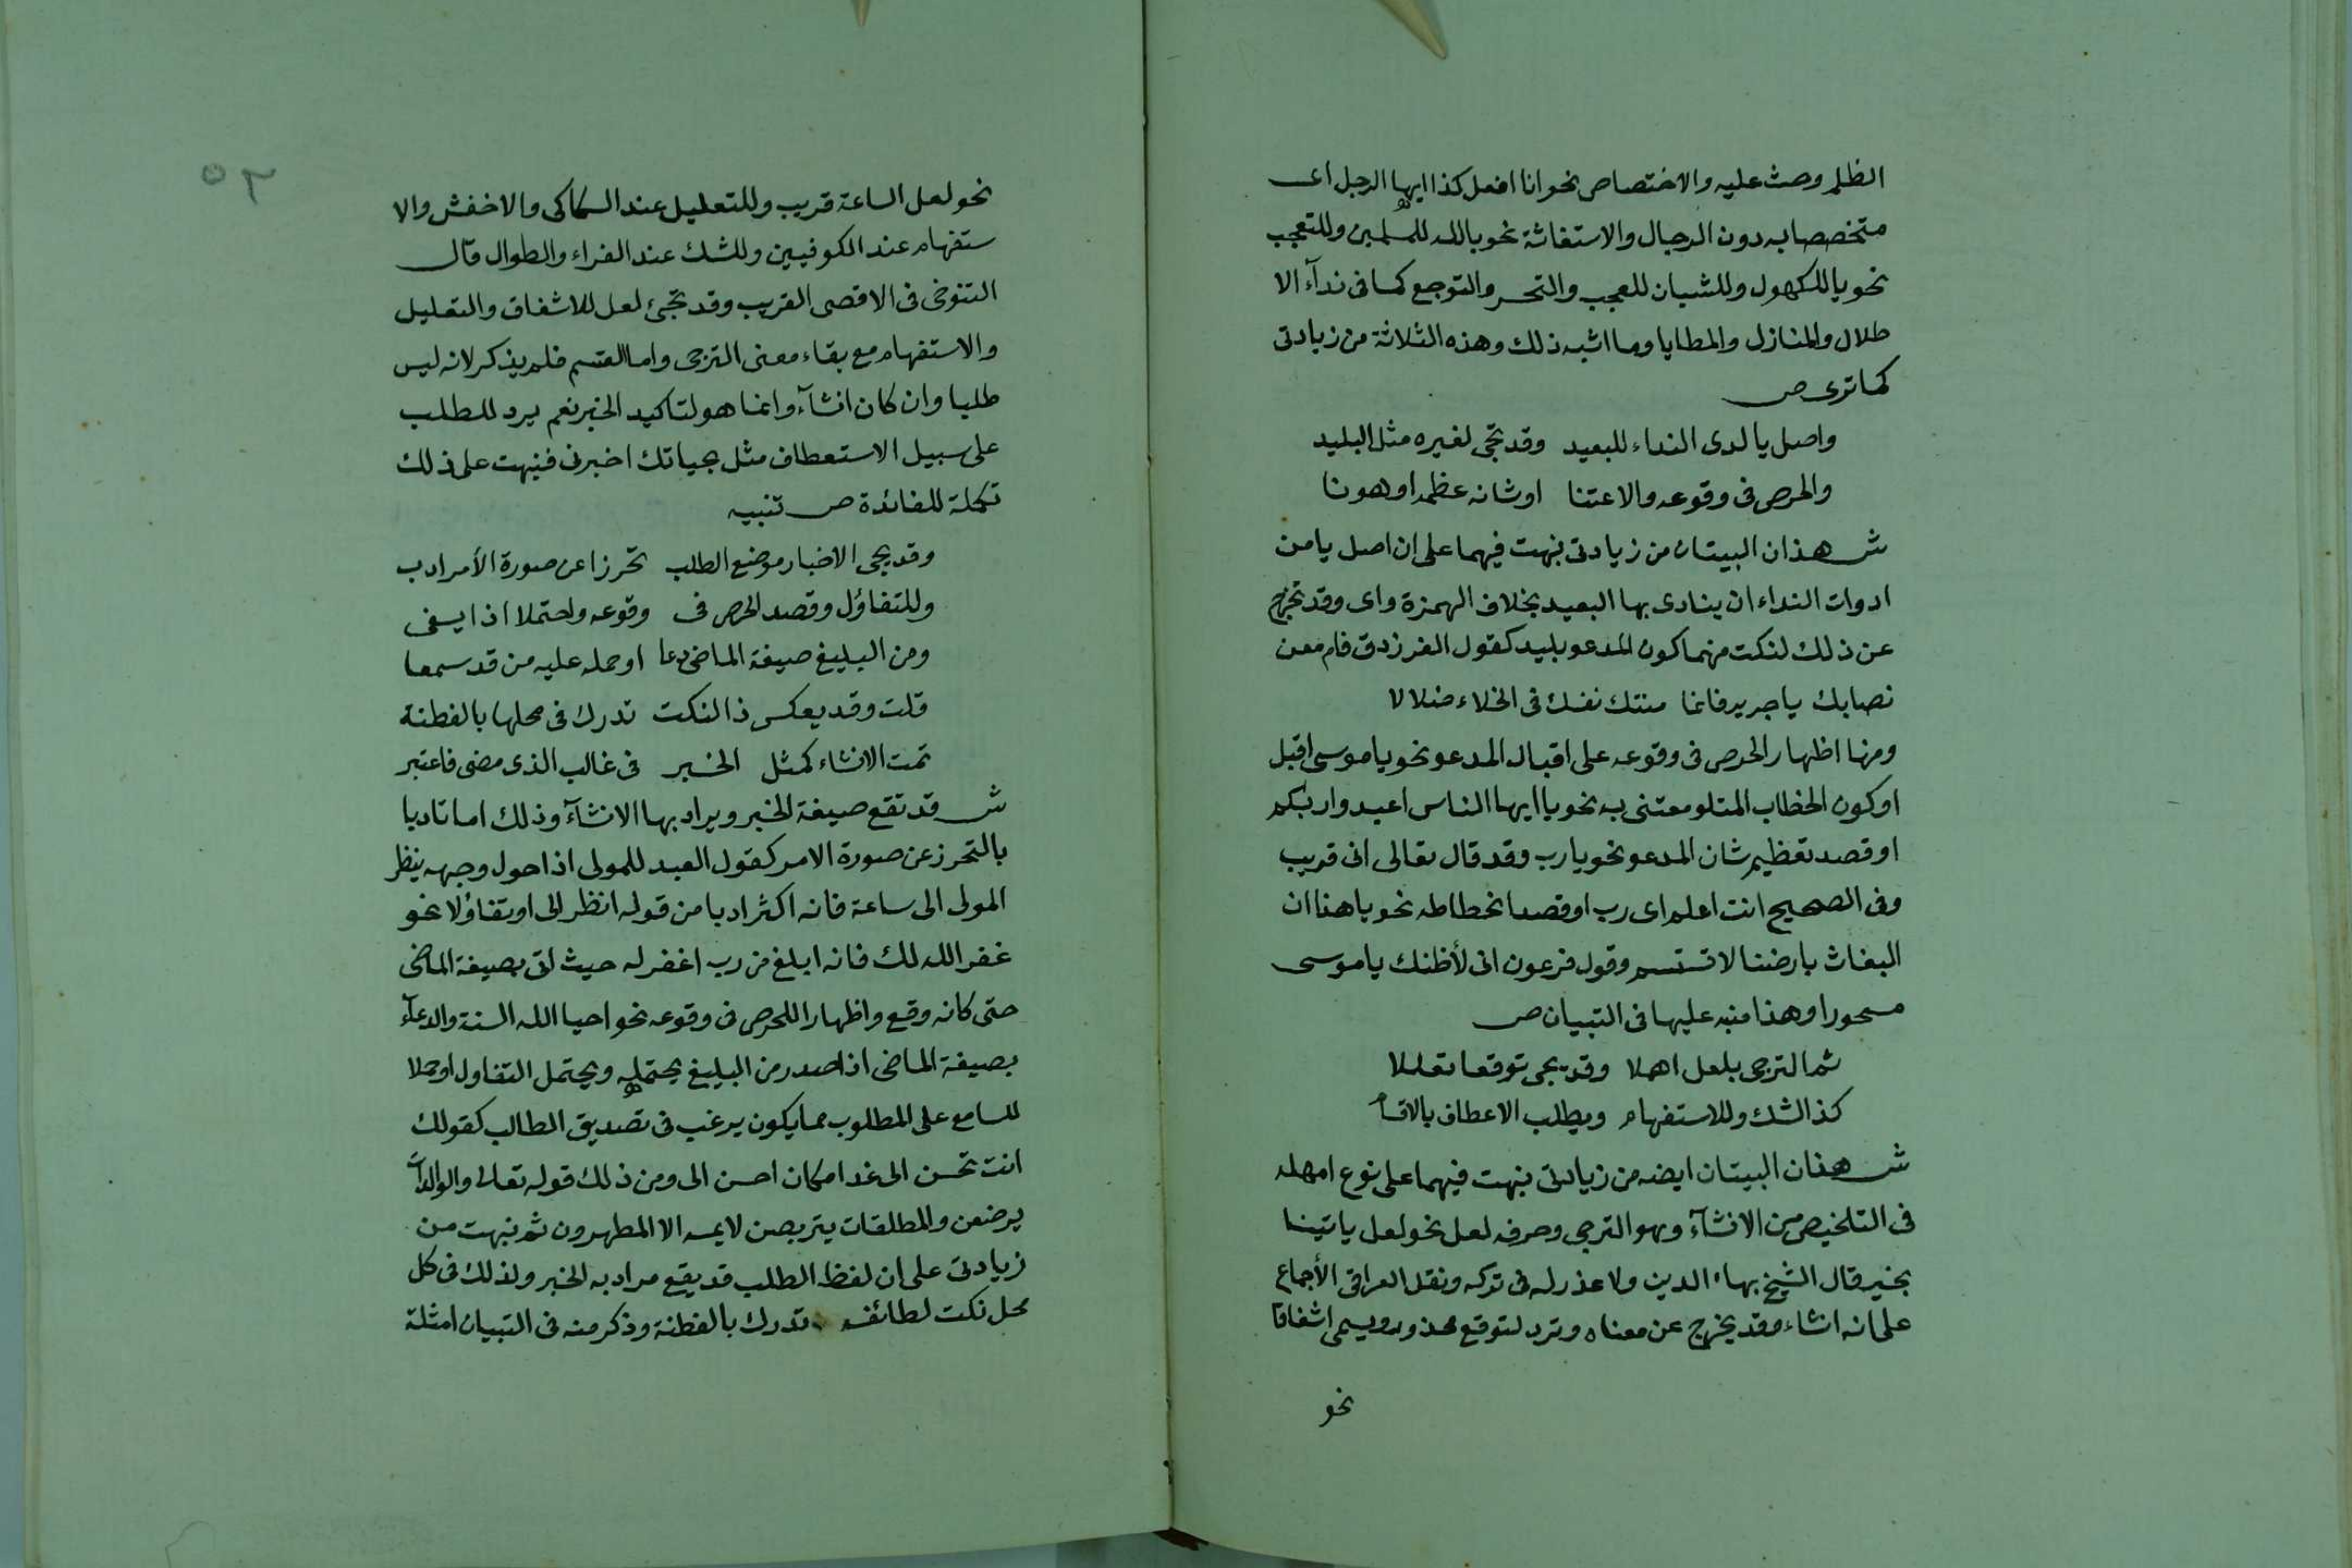 الظلم وحث عليه والاختصاص نحو انا افعل كذا ايها الرجل اى
متخصصا به دون الرجال والاستغاثة نحو يالله للمسلمين وللتعجب
نحو ياللكهول وللشبان للعجب والتحسر والتوجع كما فى ندآء الا
طلال والمنازل والمطايا وما اشبه ذلك وهذه الثلاثة من زيادتى
كما ترى ص
واصل يا لدى النداء للبعيد وقد تجى لغيره مثل البليد
والحرص فى وقوعه والاعتنا او شانه عظمه او هونا
ش هذان البيتان من زيادتى نبهت فيهما على ان اصل يا من
ادوات النداء ان ينادى بها البعيد بخلاف الهمزة واى وقد تخرج
عن ذلك لنكت منهما كون المدعو بليد كقول الفرزدق فام معن
نصابك يا جرير فانما منتك نفسك فى الخلاء ضلالا
ومنها اظهار الحرص فى وقوعه على اقبال المدعو نحو يا موسى اقبل
او كون الخطاب المتلو معتنى به نحو يا ايها الناس اعبدوا ربكم
او قصد تعظيم شان المدعو نحو يا رب وقد قال تعالى انى قريب
وفى الصحيح انت اعلم اى رب او قصد انحطاطه نحو يا هذا ان
البغاث بارضنا لا تستسر وقول فرعون انى لأظنك يا موسى
مسحورا وهذا منبه عليها فى التبيان ص
ثم الترجى بلعل اهملا وقد يجى توقعا تعللا
كذا لشك وللاستفهام ويطلب الاعطاف بالاقسام
ش هذان البيتان ايضه من زيادتى نبهت فيهما على نوع امهله
فى التلخيص من الانشآء وهو الترجى وحرفه لعل نحو لعل ياتينا
بخير قال الشيخ بهاء الدين ولا عذر له فى تركه ونقل العراقى الأجماع
على انه انشاء وقد يخرج عن معناه وترد لتوقع محذور ويسمى اشفاقا
نحو
٥٣
نحو لعل الساعة قريب وللتعليل عند السكاكى والاخفش والا
ستفهام عند الكوفيين وللشك عند الفراء والطوال قال
التنوخى فى الاقصى القريب وقد تجئ لعل للاشفاق والتعليل
والاستفهام مع بقاء معنى الترجى واما القسم فلم يذكر لانه ليس
طلبا وان كان انشآء وانما هو لتاكيد الخبر نعم يرد للطلب
على سبيل الاستعطاف مثل بحياتك اخبرنى فنبهت على ذلك
تكملة للفائدة ص تنبيه
وقد يجى الاخبار موضع الطلب تحرزا عن صورة الأمر ادب
وللتفاؤل وقصد الحرص فى وقوعه واحتملا اذا يفى
ومن البليغ صيغة الماضى دعا او حمله عليه من قد سمعا
قلت وقد يعكس ذا لنكت تدرك فى محلها بالفطنة
تمت الانشاء كمثل الخبر فى غالب الذى مضى فاعتبر
ش قد تقع صيغة الخبر ويراد بها الانشآء وذلك اما تاديا
بالتحرز عن صورة الامر كقول العبد للمولى اذا حول وجهه ينظر
المولى الى ساعة فانه اكثر ادبا من قوله انظر الى او تفاؤلا نحو
غفر الله لك فانه ابلغ من رب اغفر له حيث اتى بصيغة الماضى
حتى كانه وقع واظهارا للحرص فى وقوعه نحو احيا الله السنة والدعآء
بصيغة الماضى اذا صدر من البليغ يحتمله ويحتمل التفاول او حملا
للسامع على المطلوب مما يكون يرغب فى تصديق الطالب كقولك
انت تحسن الى غدا مكان احسن الى ومن ذلك قوله تعالى والوالدات
يرضعن والمطلقات يتربصن لا يمسه الا المطهرون ثم نبهت من
زيادتى على ان لفظ الطلب قد يقع مراد به الخبر ولذلك فى كل
محل نكت لطائف تدرك بالفطنة وذكر منه فى التبيان امثلة